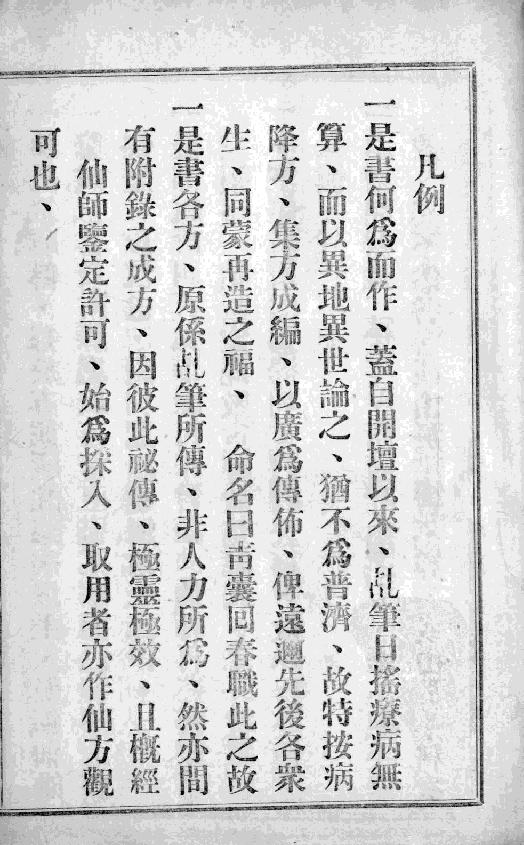 凡例
一是書何爲而作、蓋自開壇以來、乩筆日搖療病無
算、而以異地異世論之、猶不爲普濟、故特按病
降方、集方成編、以廣爲傳佈、俾遠邇先後各衆
生、同蒙再造之福、命名曰青囊回春職此之故
一是書各方、原係乩筆所傳、非人力所爲、然亦間
有附錄之成方、因彼此祕傳、極靈極效、且槪經
仙師鑒定許可、始爲採入、取用者亦作仙方觀
可也、